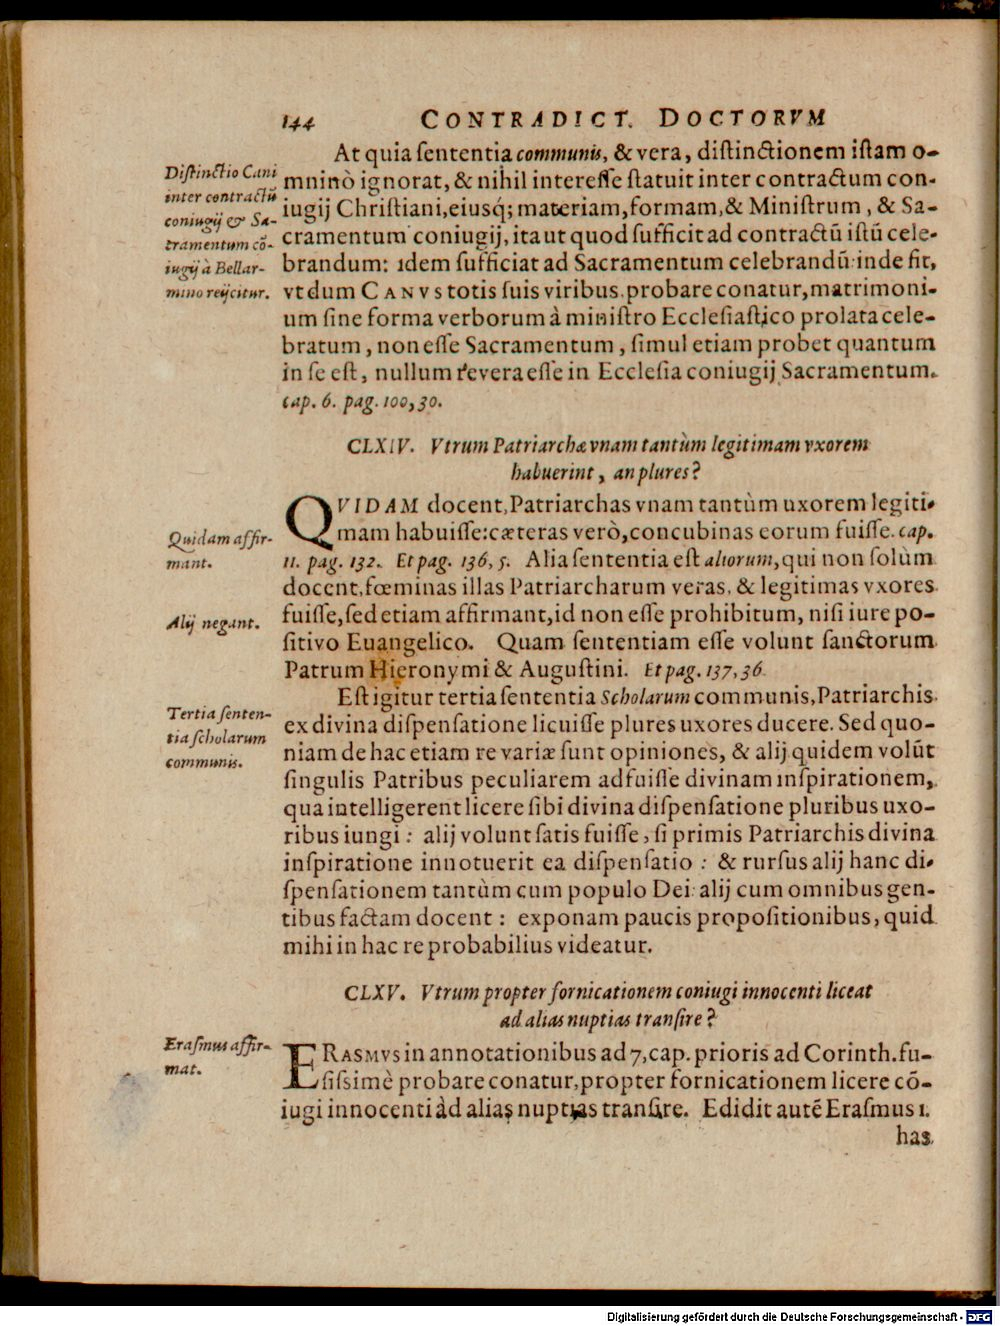 144 CONTRADICT. DOCTORVM
At quia ſententia communis, & vera, diſtinctionem iſtam o-
mninò ignorat, & nihil intereſſe ſtatuit inter contractum con-
iugij Chriſtiani, eiusq́; materiam, formam, & Miniſtrum, & Sa-
cramentum coniugij, ita ut quod ſufficit ad contractū iſtū cele-
brandum: idem ſufficiat ad Sacramentum celebrandū: inde fit,
vt dum CANVS totis ſuis viribus probare conatur, matrimoni-
um ſine forma verborum à miniſtro Eccleſiaſtico prolata cele-
bratum, non eſſe Sacramentum, ſimul etiam probet quantum
in ſe eſt, nullum revera eſſe in Eccleſia coniugij Sacramentum.
cap. 6. pag. 100, 30.
Diſtinctio Cani
inter contractū
coniugij & Sa-
cramentum cō-
iugij à Bellar-
mino reijcitur.
CLXIV. Vtrum Patriarchæ vnam tantùm legitimam vxorem
habuerint, an plures?
QVIDAM docent, Patriarchas vnam tantùm uxorem legiti-
mam habuiſſe: cæteras verò, concubinas eorum fuiſſe. cap.
11. pag. 132. Et pag. 136, 5. Alia ſententia eſt aliorum, qui non ſolùm
docent, fœminas illas Patriarcharum veras, & legitimas vxores
fuiſſe, ſed etiam affirmant, id non eſſe prohibitum, niſi iure po-
ſitivo Euangelico. Quam ſententiam eſſe volunt ſanctorum
Patrum Hieronymi & Auguſtini. Et pag. 137, 36.
Quidam affir-
mant.
Alij negant.
Eſt igitur tertia ſententia Scholarum communis, Patriarchis
ex divina diſpenſatione licuiſſe plures uxores ducere. Sed quo-
niam de hac etiam re variæ ſunt opiniones, & alij quidem volūt
ſingulis Patribus peculiarem adfuiſſe divinam inſpirationem,
qua intelligerent licere ſibi divina diſpenſatione pluribus uxo-
ribus iungi: alij volunt ſatis fuiſſe, ſi primis Patriarchis divina
inſpiratione innotuerit ea diſpenſatio: & rurſus alij hanc di-
ſpenſationem tantùm cum populo Dei: alij cum omnibus gen-
tibus factam docent: exponam paucis propoſitionibus, quid
mihi in hac re probabilius videatur.
Tertia ſenten-
tia ſcholarum
communis.
CLXV. Vtrum propter fornicationem coniugi innocenti liceat
ad alias nuptias tranſire?
ERASMVS in annotationibus ad 7, cap. prioris ad Corinth. fu-
ſiſsimè probare conatur, propter fornicationem licere cō-
iugi innocenti ad alias nuptias tranſire. Edidit autē Eraſmus 1.
has
Eraſmus affir-
mat.
Digitalisierung gefördert durch die Deutsche Forschungsgemeinschaft - DFG